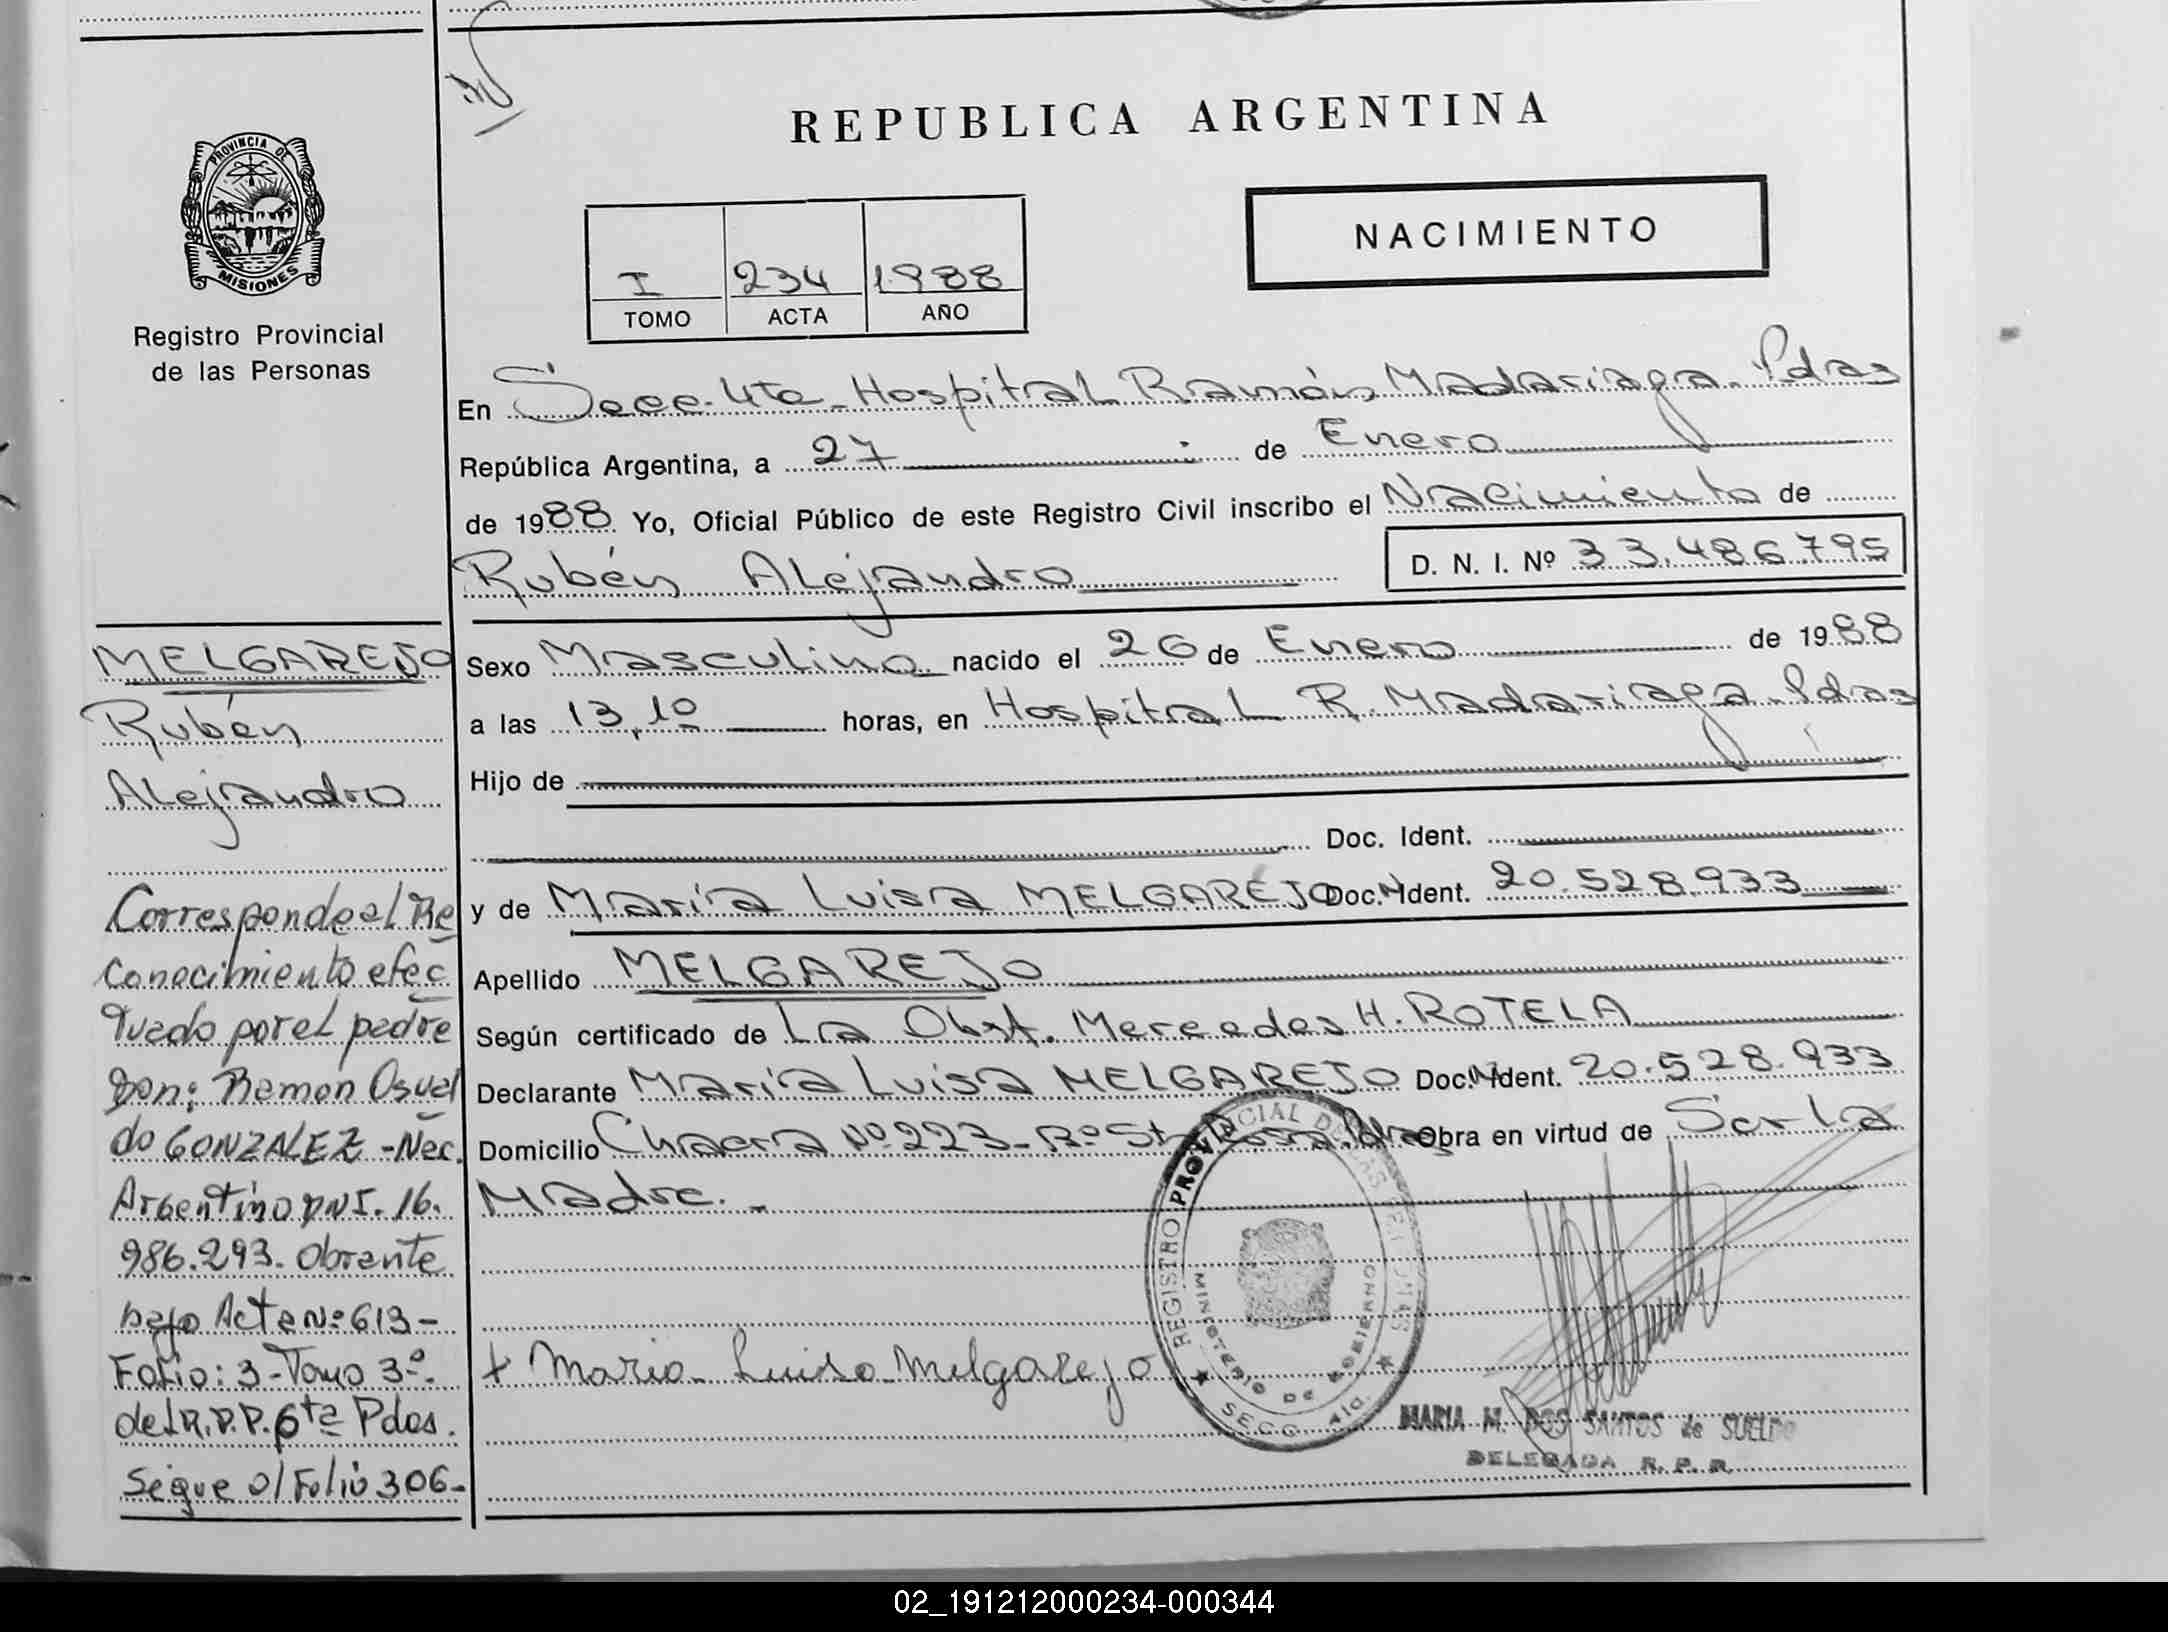 PROVINCIA DE
MISIONES
Registro Provincial
de las Personas
MELGAREJO
Rubén
Alejandro
Corresponde al Re
conocimiento efec
tuado por el padre
Don: Ramón Osval
do GONZALEZ - Nac.
Argentino DNI. 16.
986.293. Obrante
bajo Acta Nº 613-
Folio: 3 - Tomo 3º.
del R.P.P. 6ta Pdas.
Sigue o/ Folio 306-
REPUBLICA ARGENTINA
NACIMIENTO
I 234 1988
TOMO ACTA AÑO
En Secc. 4ta - Hospital Ramón Madariaga. Pdas
República Argentina, a 27 de Enero
de 1988 Yo, Oficial Público de este Registro Civil inscribo el Nacimiento de
Rubén Alejandro D. N. I. Nº 33.486.795
Sexo Masculino nacido el 26 de Enero de 1988
a las 13,10 horas, en Hospital R. Madariaga. Pdas
Hijo de
Doc. Ident.
y de María Luisa MELGAREJO Doc. Ident. 20.528.933
Apellido MELGAREJO
Según certificado de La Obst. Mercedes H. ROTELA
Declarante María Luisa MELGAREJO Doc. Ident. 20.528.933
Domicilio Chacra Nº 223 - Bº Sta Rosa. Pdas Obra en virtud de Ser la
Madre. -
María Luisa Melgarejo
REGISTRO PROVINCIAL DE LAS PERSONAS
MINISTERIO DE GOBIERNO
SECC. 4ta.
MARIA M. DOS SANTOS de SUELDO
DELEGADA R. P. P.
02_191212000234-000344